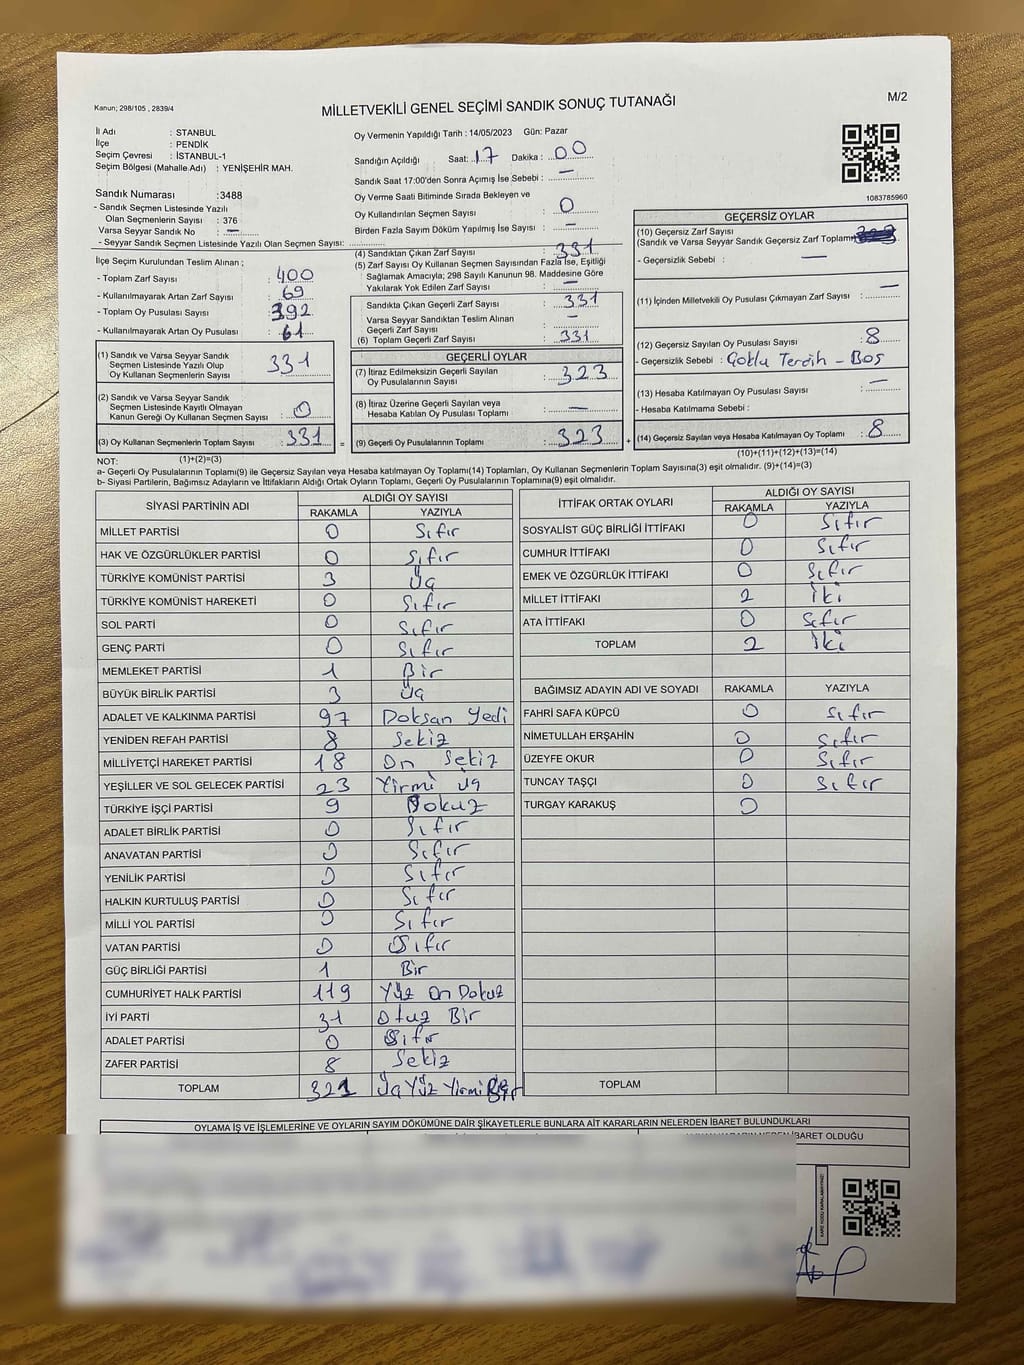 Kanun; 298/105 , 2839/4
MİLLETVEKİLİ GENEL SEÇİMİ SANDIK SONUÇ TUTANAĞI
M/2
İl Adı : STANBUL
İlçe : PENDİK
Seçim Çevresi : İSTANBUL-1
Seçim Bölgesi (Mahalle Adı) : YENİŞEHİR MAH.
Sandık Numarası :3488
- Sandık Seçmen Listesinde Yazılı
Olan Seçmenlerin Sayısı : 376
Varsa Seyyar Sandık No : —
- Seyyar Sandık Seçmen Listesinde Yazılı Olan Seçmen Sayısı:
Oy Vermenin Yapıldığı Tarih : 14/05/2023 Gün: Pazar
Sandığın Açıldığı Saat: 17 Dakika : 00
Sandık Saat 17:00'den Sonra Açımış İse Sebebi : —
Oy Verme Saati Bitiminde Sırada Bekleyen ve
Oy Kullandırılan Seçmen Sayısı : 0
Birden Fazla Sayım Dökümü Yapılmış İse Sayısı : —
1083785960
İlçe Seçim Kurulundan Teslim Alınan ;
- Toplam Zarf Sayısı : 400
- Kullanılmayarak Artan Zarf Sayısı : 69
- Toplam Oy Pusulası Sayısı : 392
- Kullanılmayarak Artan Oy Pusulası : 61
(1) Sandık ve Varsa Seyyar Sandık
Seçmen Listesinde Yazılı Olup
Oy Kullanan Seçmenlerin Sayısı 331
(2) Sandık ve Varsa Seyyar Sandık
Seçmen Listesinde Kayıtlı Olmayan
Kanun Gereği Oy Kullanan Seçmen Sayısı : 0
(3) Oy Kullanan Seçmenlerin Toplam Sayısı : 331 =
(4) Sandıktan Çıkan Zarf Sayısı : 331
(5) Zarf Sayısı Oy Kullanan Seçmen Sayısından Fazla İse, Eşitliği
Sağlamak Amacıyla; 298 Sayılı Kanunun 98. Maddesine Göre
Yakılarak Yok Edilen Zarf Sayısı : —
Sandıkta Çıkan Geçerli Zarf Sayısı : 331
Varsa Seyyar Sandıktan Teslim Alınan
Geçerli Zarf Sayısı : —
(6) Toplam Geçerli Zarf Sayısı : 331
GEÇERLİ OYLAR
(7) İtiraz Edilmeksizin Geçerli Sayılan
Oy Pusulalarının Sayısı : 323
(8) İtiraz Üzerine Geçerli Sayılan veya
Hesaba Katılan Oy Pusulası Toplamı : —
(9) Geçerli Oy Pusulalarının Toplamı : 323 +
GEÇERSİZ OYLAR
(10) Geçersiz Zarf Sayısı
(Sandık ve Varsa Seyyar Sandık Geçersiz Zarf Toplamı
- Geçersizlik Sebebi : —
(11) İçinden Milletvekili Oy Pusulası Çıkmayan Zarf Sayısı : —
(12) Geçersiz Sayılan Oy Pusulası Sayısı : 8
- Geçersizlik Sebebi : Çoklu Tercih - Boş
(13) Hesaba Katılmayan Oy Pusulası Sayısı : —
- Hesaba Katılmama Sebebi :
(14) Geçersiz Sayılan veya Hesaba Katılmayan Oy Toplamı : 8
NOT: (1)+(2)=(3) (10)+(11)+(12)+(13)=(14)
a- Geçerli Oy Pusulalarının Toplamı(9) ile Geçersiz Sayılan veya Hesaba katılmayan Oy Toplamı(14) Toplamları, Oy Kullanan Seçmenlerin Toplam Sayısına(3) eşit olmalıdır. (9)+(14)=(3)
b- Siyasi Partilerin, Bağımsız Adayların ve İttifakların Aldığı Ortak Oyların Toplamı, Geçerli Oy Pusulalarının Toplamına(9) eşit olmalıdır.
SİYASİ PARTİNİN ADI ALDIĞI OY SAYISI
RAKAMLA YAZIYLA
MİLLET PARTİSİ 0 Sıfır
HAK VE ÖZGÜRLÜKLER PARTİSİ 0 Sıfır
TÜRKİYE KOMÜNİST PARTİSİ 3 Üç
TÜRKİYE KOMÜNİST HAREKETİ 0 Sıfır
SOL PARTİ 0 Sıfır
GENÇ PARTİ 0 Sıfır
MEMLEKET PARTİSİ 1 Bir
BÜYÜK BİRLİK PARTİSİ 3 Üç
ADALET VE KALKINMA PARTİSİ 97 Doksan Yedi
YENİDEN REFAH PARTİSİ 8 Sekiz
MİLLİYETÇİ HAREKET PARTİSİ 18 On Sekiz
YEŞİLLER VE SOL GELECEK PARTİSİ 23 Yirmi Üç
TÜRKİYE İŞÇİ PARTİSİ 9 Dokuz
ADALET BİRLİK PARTİSİ 0 Sıfır
ANAVATAN PARTİSİ 0 Sıfır
YENİLİK PARTİSİ 0 Sıfır
HALKIN KURTULUŞ PARTİSİ 0 Sıfır
MİLLİ YOL PARTİSİ 0 Sıfır
VATAN PARTİSİ 0 Sıfır
GÜÇ BİRLİĞİ PARTİSİ 1 Bir
CUMHURİYET HALK PARTİSİ 119 Yüz On Dokuz
İYİ PARTİ 31 Otuz Bir
ADALET PARTİSİ 0 Sıfır
ZAFER PARTİSİ 8 Sekiz
TOPLAM 321 Üç Yüz Yirmi Bir
İTTİFAK ORTAK OYLARI ALDIĞI OY SAYISI
RAKAMLA YAZIYLA
SOSYALİST GÜÇ BİRLİĞİ İTTİFAKI 0 Sıfır
CUMHUR İTTİFAKI 0 Sıfır
EMEK VE ÖZGÜRLÜK İTTİFAKI 0 Sıfır
MİLLET İTTİFAKI 2 İki
ATA İTTİFAKI 0 Sıfır
TOPLAM 2 İki
BAĞIMSIZ ADAYIN ADI VE SOYADI RAKAMLA YAZIYLA
FAHRİ SAFA KÜPCÜ 0 Sıfır
NİMETULLAH ERŞAHİN 0 Sıfır
ÜZEYFE OKUR 0 Sıfır
TUNCAY TAŞÇI 0 Sıfır
TURGAY KARAKUŞ 0
TOPLAM
OYLAMA İŞ VE İŞLEMLERİNE VE OYLARIN SAYIM DÖKÜMÜNE DAİR ŞİKAYETLERLE BUNLARA AİT KARARLARIN NELERDEN İBARET BULUNDUKLARI
İBARET OLDUĞU
KARE KODU KARALAMAYINIZ!